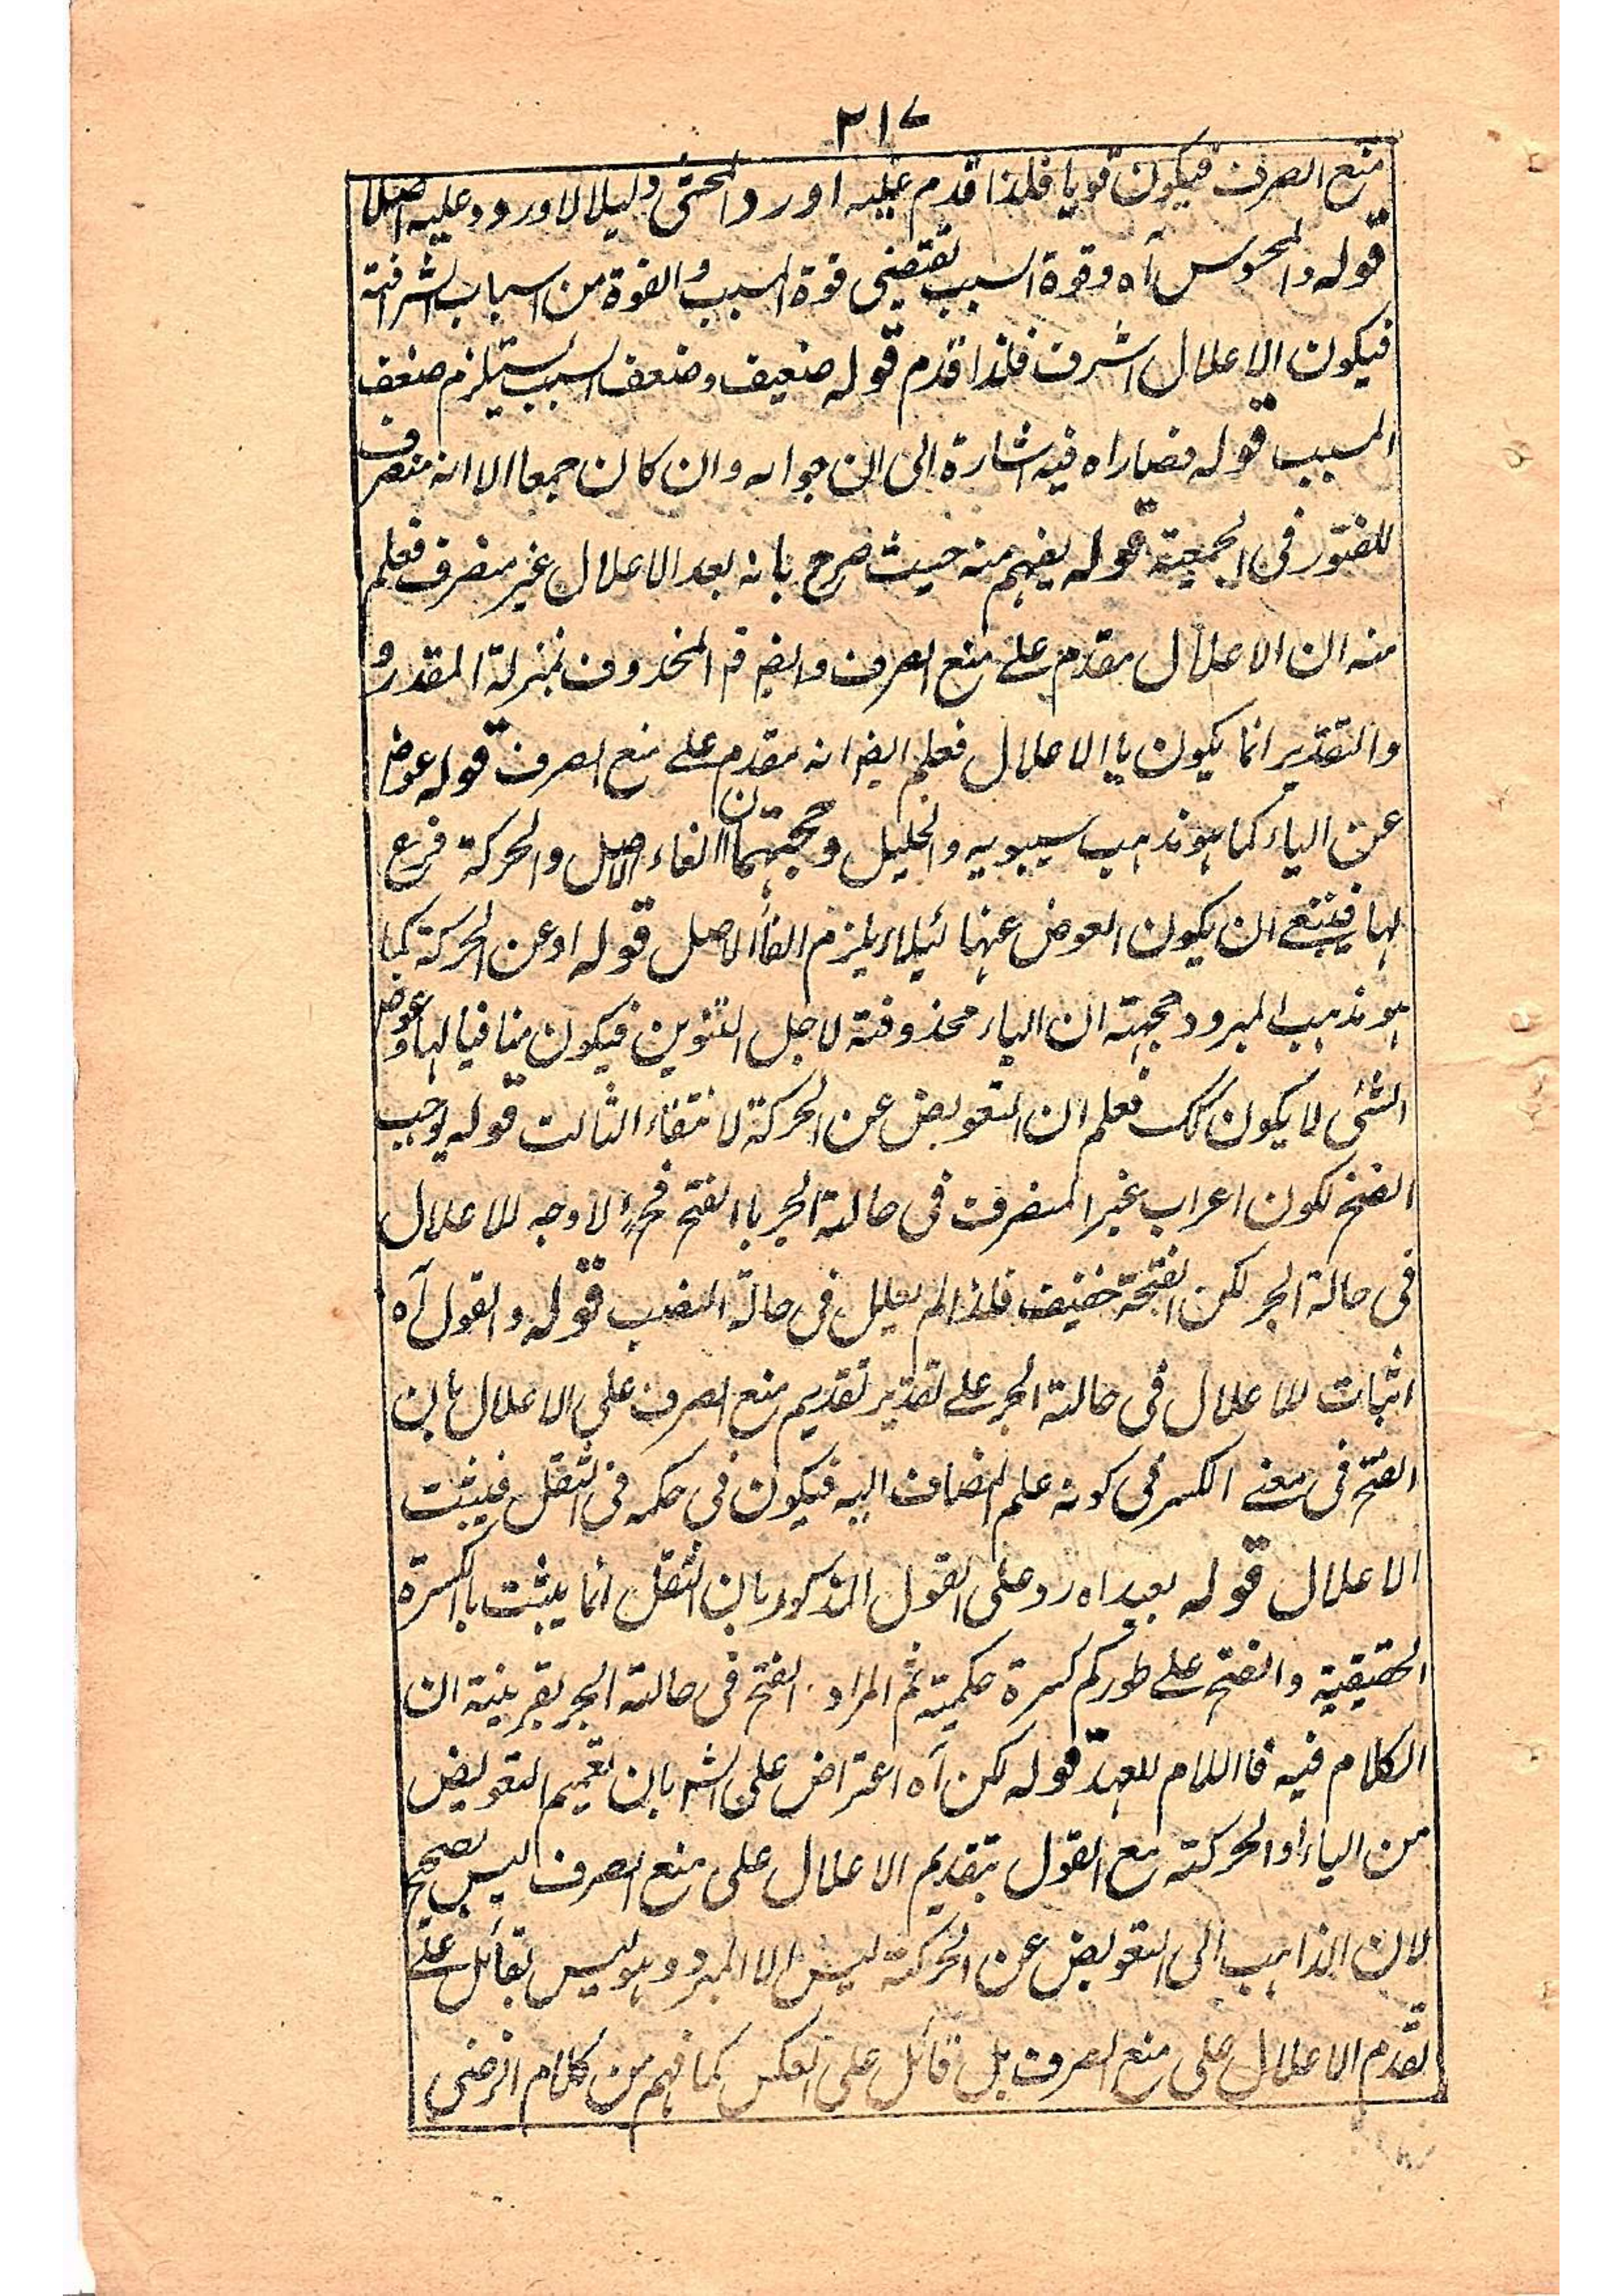 ٢١٧
منع الصرف فيكون قويا فلذا قدم عليه اورد المحشى دليلا لا ورود عليه اصلا
قوله والمحسوس آه وقوة السبب تقتضى قوة المسبب والقوة من اسباب الشرافة
فيكون الاعلال اشرف فلذا قدم قوله ضعيف وضعف السبب يستلزم ضعف
المسبب قوله فصار اه فيه اشارة الى ان جوار وان كان جمعا الا انه منصرف
للفتور فى الجمعية قوله يفهم منه حيث صرح بانه بعد الاعلال غير منصرف فعلم
منه ان الاعلال مقدم على منع الصرف وايض قم المحذوف بمنزلة المقدر و
والتقدير انما يكون با الاعلال فعلم ايض انه مقدم على منع الصرف قوله عوض
عن الياء كما هو مذهب سيبويه والخليل وحجتهما ان الفاء الاصل والحركة فرع
لها فينبغے ان يكون العوض عنها لئيلا يلزم الغأ الاصل قوله او عن الحركة كما
هو مذهب المبرد وحجته ان الياء محذوفة لاجل التنوين فيكون منافيا لها وعوض
الشئى لا يكون كك فعلم ان التعويض عن الحركة لانتفاء الثالث قوله يوجب
الفتح لكون اعراب غير المنصرف فى حالة الجر با الفتح فح لا وجه للاعلال
فى حالة الجر لكن الفتحة خفيف فلذا لم يعلل فى حالة النصب قوله والقول آه
اثبات للاعلال فى حالة الجر على تقدير تقديم منع الصرف على الاعلال بان
الفتح فى معنے الكسر فى كونه علم المضاف اليه فيكون فى حكمه فى الثقل فيثبت
الاعلال قوله بعيد اه رد على القول المذكور بان الثقل انما يثبت با الكسرة
الحقيقية والفتح على طوركم كسرة حكمية ثم المراد الفتح فى حالة الجر بقرينة ان
الكلام فيه فا اللام للعهد قوله لكن آه اعتراض على الشه بان تعميم التعويض
من الياء او الحركة مع القول بتقديم الاعلال على منع الصرف ليس بصحيح
لان الذاهب الى التعويض عن الحركة ليس الا المبرد وهو ليس بقائل على
تقدم الاعلال على منع الصرف بل قائل على العكس كما فهم من كلام الرضى